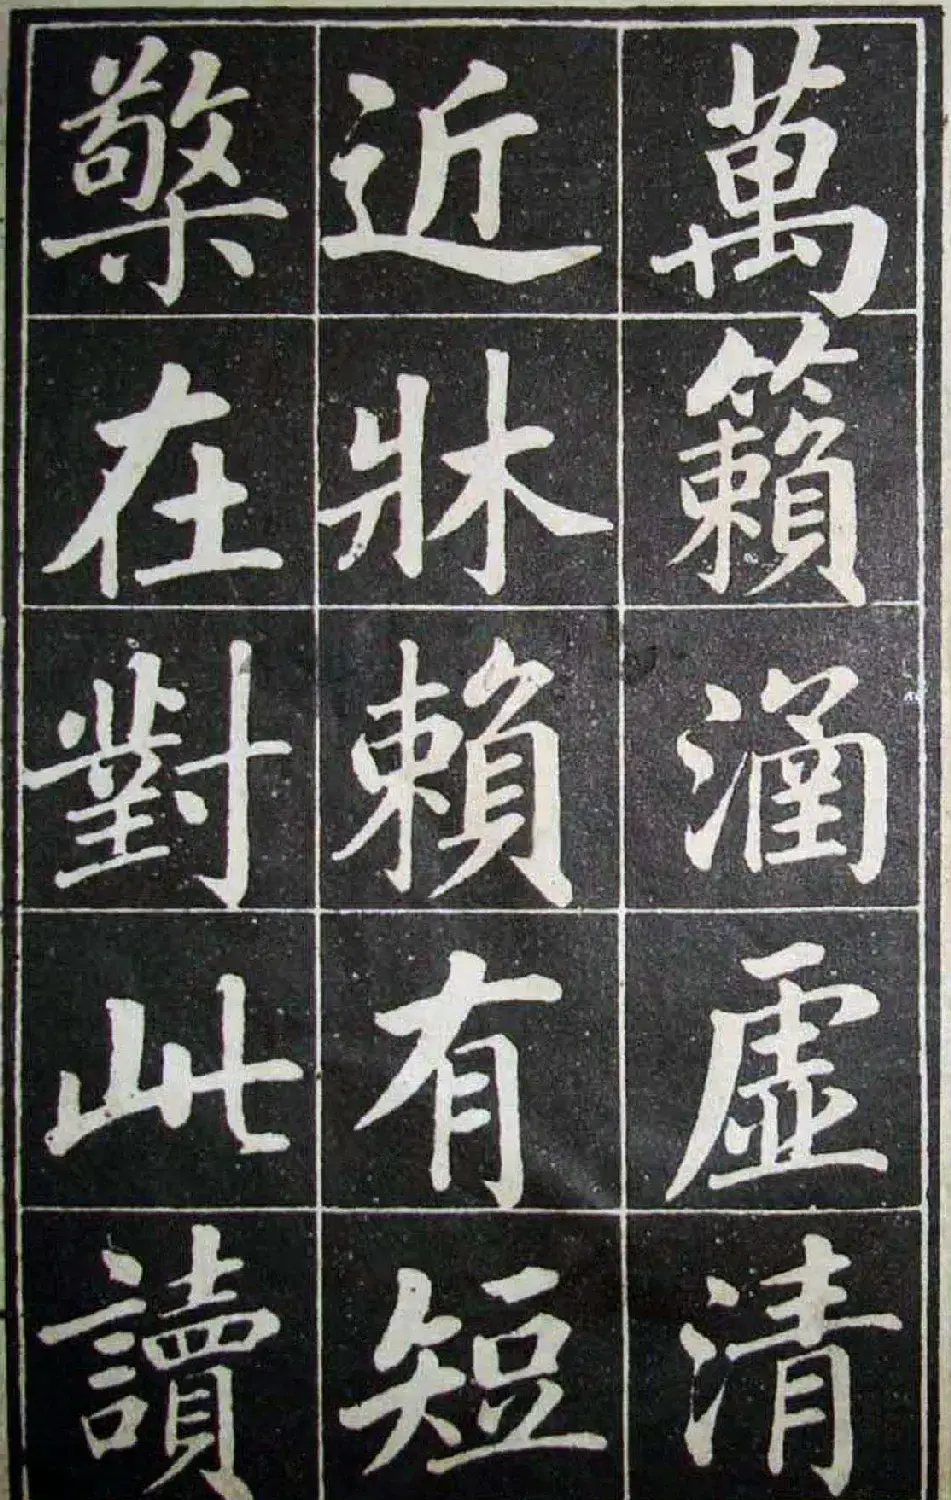 萬籟涵虛清
近牀賴有短
檠在對此讀